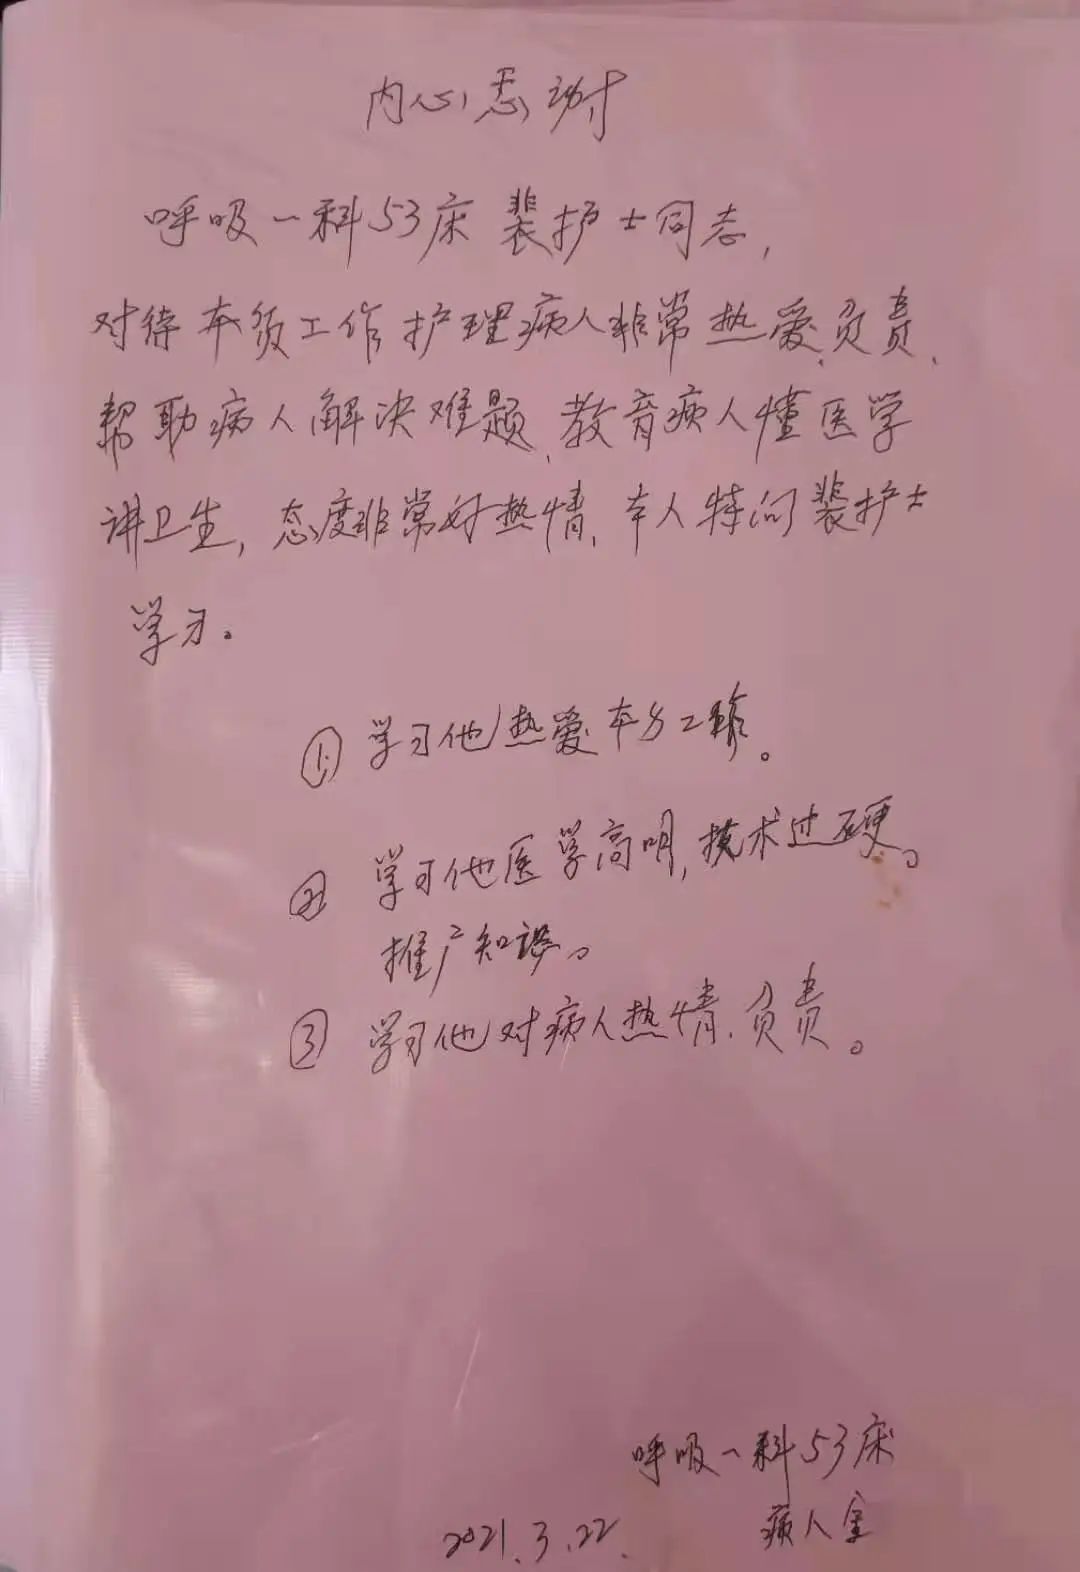 内心感谢
呼吸一科53床 裴护士同志,
对待本质工作护理病人非常热爱、负责、
帮助病人解决难题、教育病人懂医学
讲卫生,态度非常好热情、本人特向裴护士
学习。
① 学习他热爱本分工作。
② 学习他医学高明,技术过硬。
推广知识。
③ 学习他对病人热情、负责。
呼吸一科53床
病人金
2021.3.22.